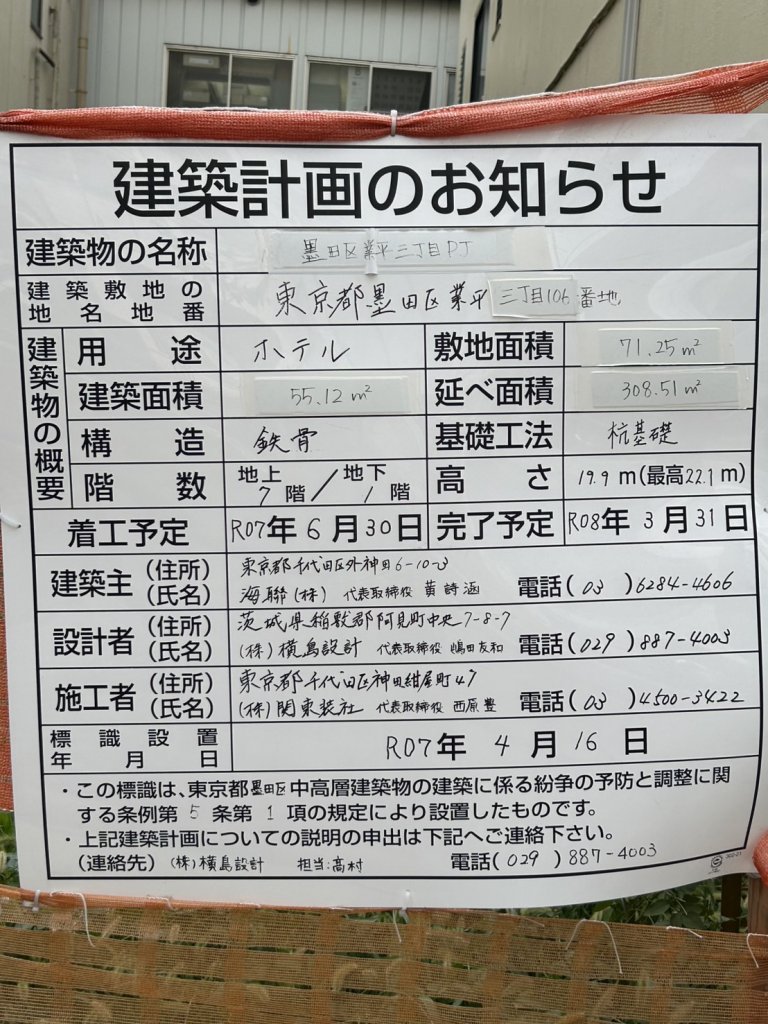 建築計画のお知らせ
建築物の名称 墨田区業平三丁目PJ
建築敷地の地名地番 東京都墨田区業平三丁目106番地
建築物の概要
用途 ホテル 敷地面積 71.25㎡
建築面積 55.12㎡ 延べ面積 308.51㎡
構造 鉄骨 基礎工法 杭基礎
階数 地上7階/地下1階 高さ 19.9m(最高22.1m)
着工予定 R07年6月30日 完了予定 R08年3月31日
建築主(住所) 東京都千代田区外神田6-10-3
(氏名) 海聯(株) 代表取締役 黄詩涵 電話(03)6284-4606
設計者(住所) 茨城県稲敷郡阿見町中央7-8-7
(氏名) (株)横島設計 代表取締役 嶋田友和 電話(029)887-4003
施工者(住所) 東京都千代田区神田紺屋町47
(氏名) (株)関東装社 代表取締役 西原豊 電話(03)4500-3422
標識設置年月日 R07年4月16日
・この標識は、東京都墨田区中高層建築物の建築に係る紛争の予防と調整に関
する条例第5条第1項の規定により設置したものです。
・上記建築計画についての説明の申出は下記へご連絡下さい。
(連絡先) (株)横島設計 担当:高村 電話(029)887-4003